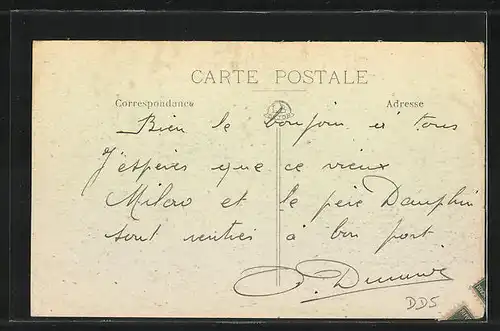 CARTE POSTALE
Correspondance
Adresse
Bien le bonjour à tous
J'espères que ce vieux
et le père Dauphin
sont rentrés à bon port
DDS